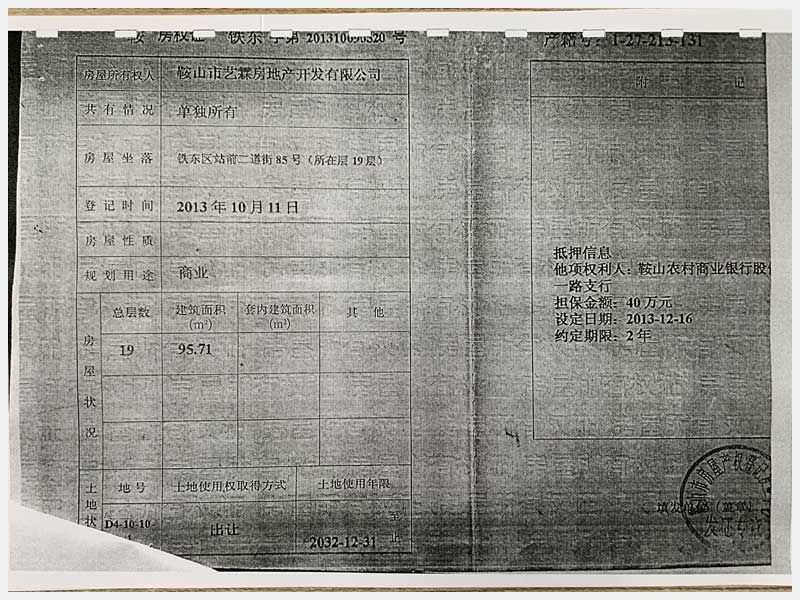 鞍 房权证 铁东 字第 201310090520 号
产籍号：1-27-213-131
房屋所有权人 鞍山市艺霖房地产开发有限公司
共有情况 单独所有
房屋坐落 铁东区站前二道街85号（所在层19层）
登记时间 2013年10月11日
房屋性质
规划用途 商业
房屋状况
总层数 建筑面积(m²) 套内建筑面积(m²) 其他
19 95.71
土地状
地号 土地使用权取得方式 土地使用年限
D4-10-10-1 出让 至 2032-12-31 止
附记
抵押信息
他项权利人：鞍山农村商业银行股份
一路支行
担保金额：40万元
设定日期：2013-12-16
约定期限：2年
填发单位（盖章）
山市房屋产权登记
发证专